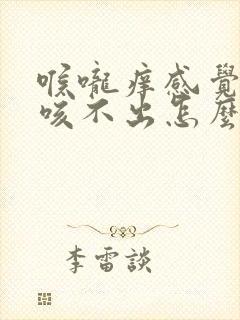 喉嚨痒感覺
咳不出怎麼
李雷談